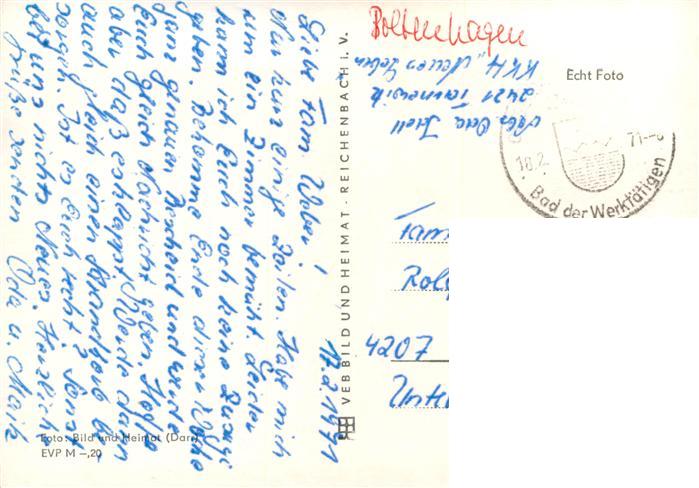 17.2.1971
Liebe Fam. Weber!
Nur kurz einige Zeilen. Habe mich
um ein Zimmer bemüht. Leider
kann ich Euch noch keine Zusage
geben. Bekomme Ende dieser Woche
ganz genauen Bescheid und werde
Euch gleich Nachricht geben. Hoffe
aber, daß es klappt. Werde dann
auch gleich einen Strandkorb be-
sorgen. Ist es Euch recht? Sonst
bei uns nichts Neues. Herzliche
Grüße senden
Oda u. Maik
Foto: Bild und Heimat (Darr)
EVP M –,20
VEB BILD UND HEIMAT · REICHENBACH i. V.
Boltenhagen
Abs. Oda
2421 Tarnewitz
KKH „Neues Leben"
Echt Foto
18.2. 71–8
Bad der Werktätigen
Fam
Rolf
4207
Unte